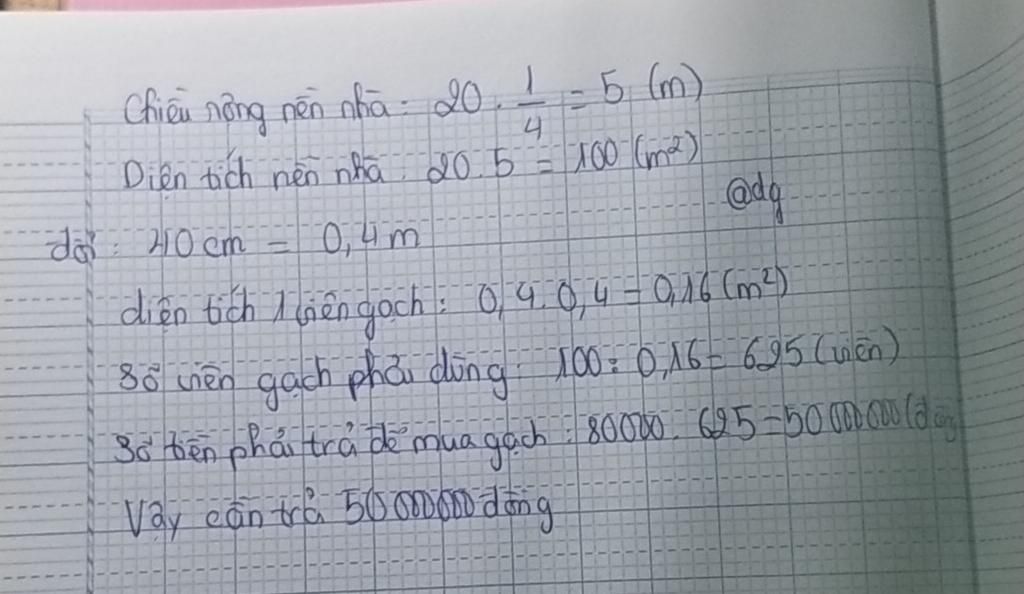 Chiều rộng nền nhà: 20 . 1/4 = 5 (m)
Diện tích nền nhà: 20.5 = 100 (m²)
@dg
đổi: 40cm = 0,4m
diện tích 1 viên gạch: 0,4.0,4=0,16(m²)
Số viên gạch phải dùng: 100:0,16=625(viên)
Số tiền phải trả để mua gạch: 80000. 625=50000000(đồng
Vậy cần trả 50000000 đồng